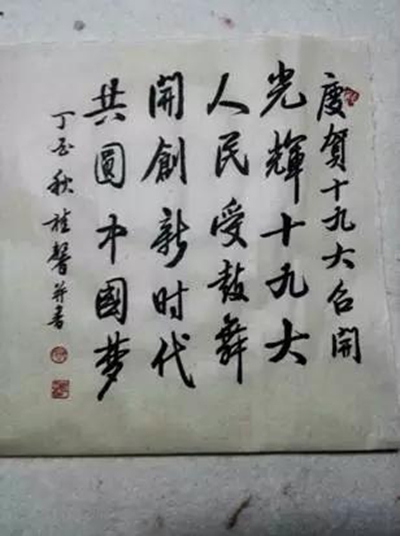 慶賀十九大召開
光輝十九大
人民受鼓舞
開創新时代
共圓中國梦
丁酉秋桂馨并書